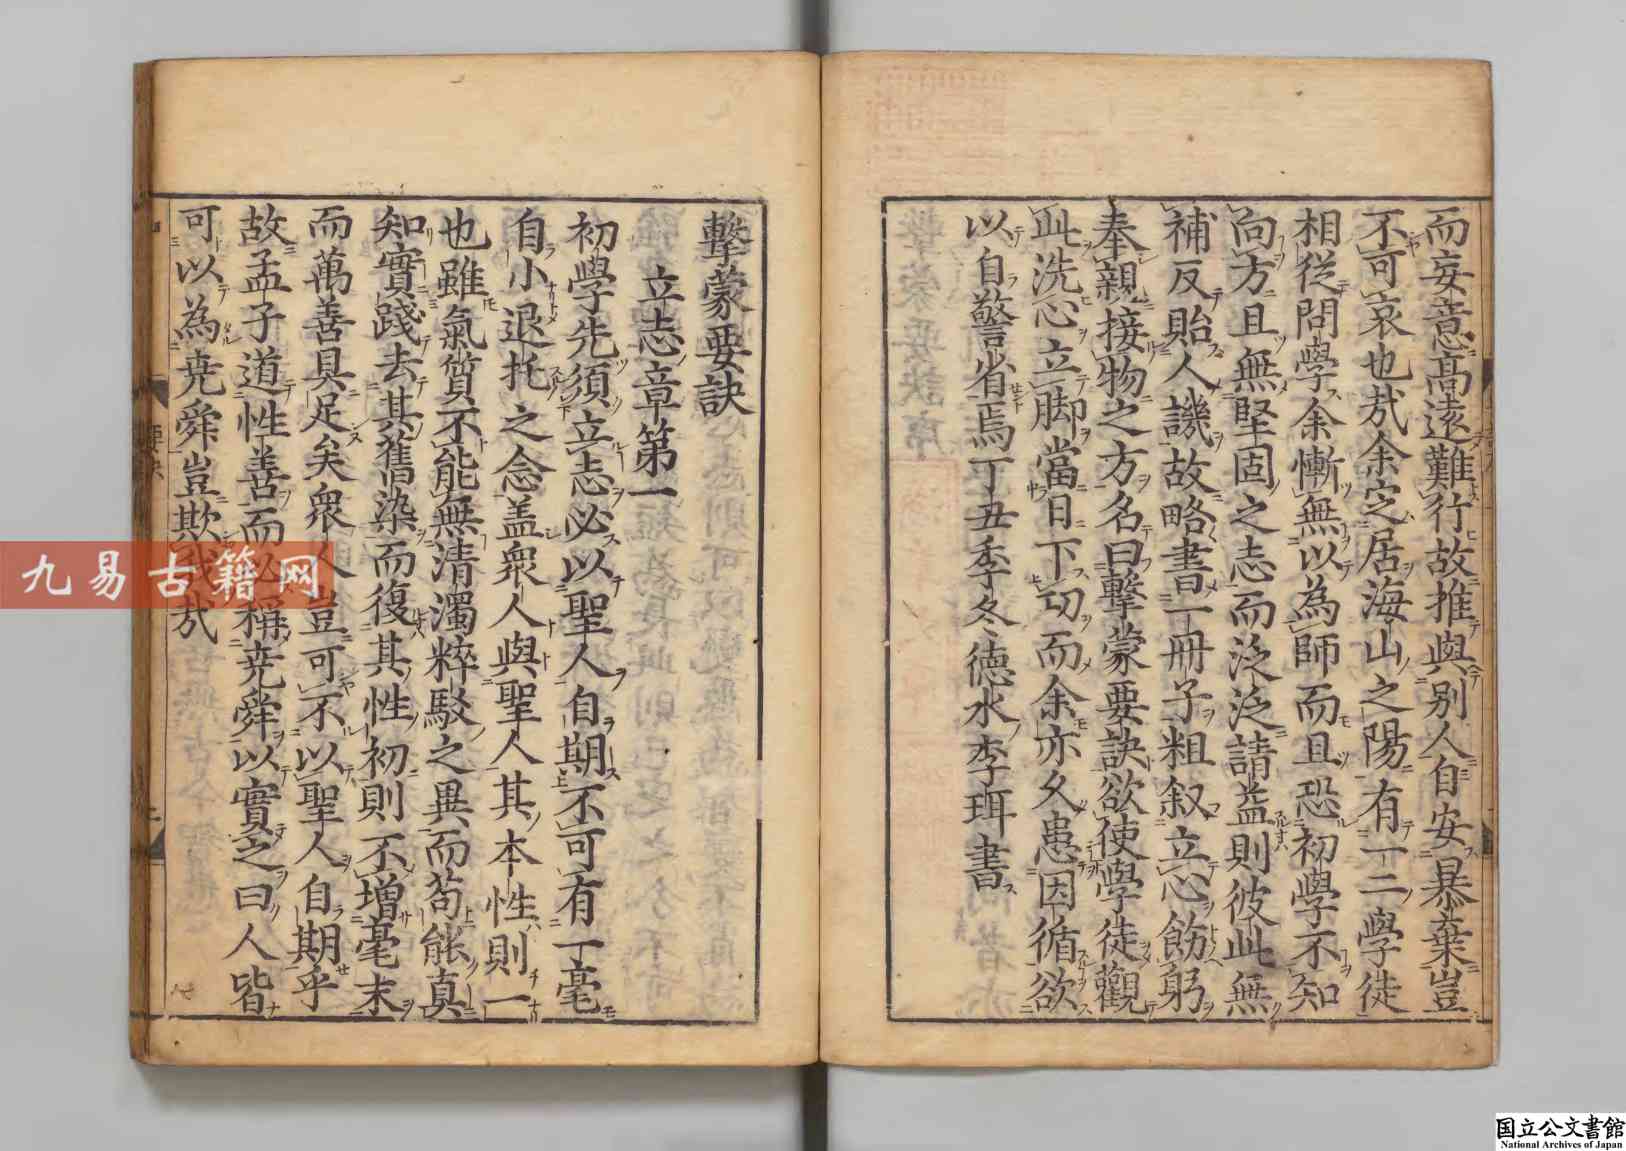 而妄意高遠難行故推與別人自安暴棄豈
不可哀也哉余定居海山之陽有一二學徒
相從問學余慚無以為師而且恐初學不知
向方且無堅固之志而泛泛請益則彼此無
補反貽人譏故略書一冊子粗叙立心飭躬
奉親接物之方名曰擊蒙要訣欲使學徒觀
此洗心立脚當日下切而余亦久患因循欲
以自警省焉丁丑季冬德水李珥書
擊蒙要訣
立志章第一
初學先須立志必以聖人自期不可有一毫
自小退托之念盖衆人與聖人其本性則一
也雖氣質不能無清濁粹駁之異而苟能真
知實踐去其舊染而復其性初則不增毫末
而萬善具足矣衆人豈可不以聖人自期乎
故孟子道性善而必稱尭舜以實之曰人皆
可以為尭舜豈欺我哉
要訣
九易古籍网
国立公文書館
National Archives of Japan